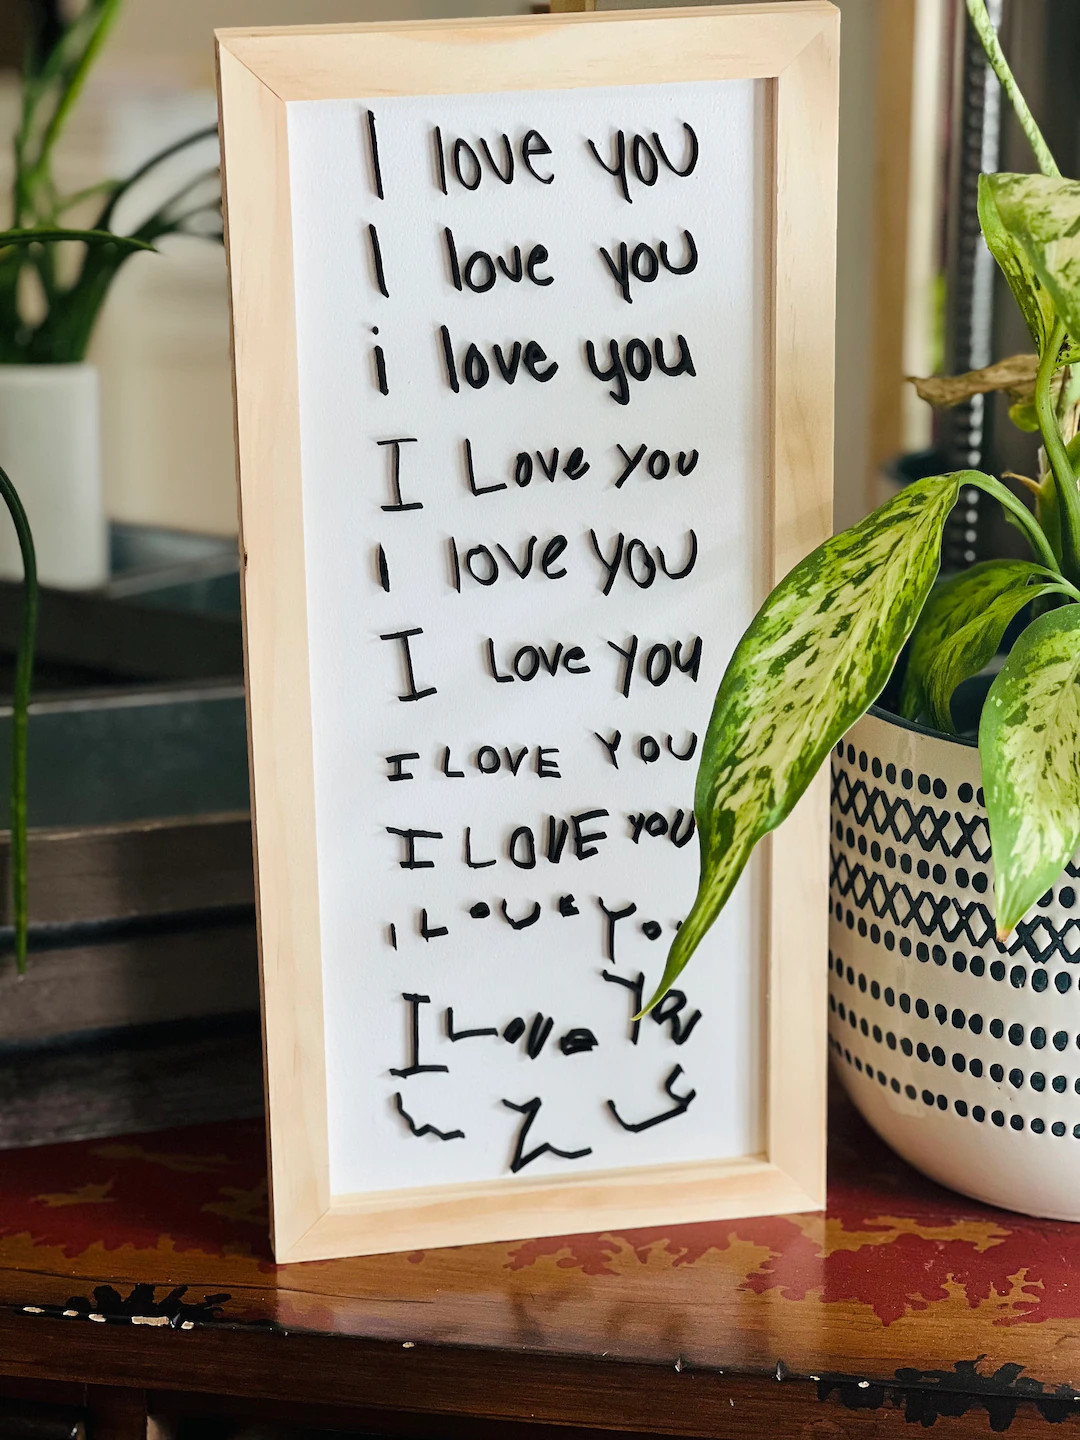 I love you
I love you
i love you
I Love you
I love you
I Love you
I LOVE YOU
I LOVE YOU
I LOVE
I Love